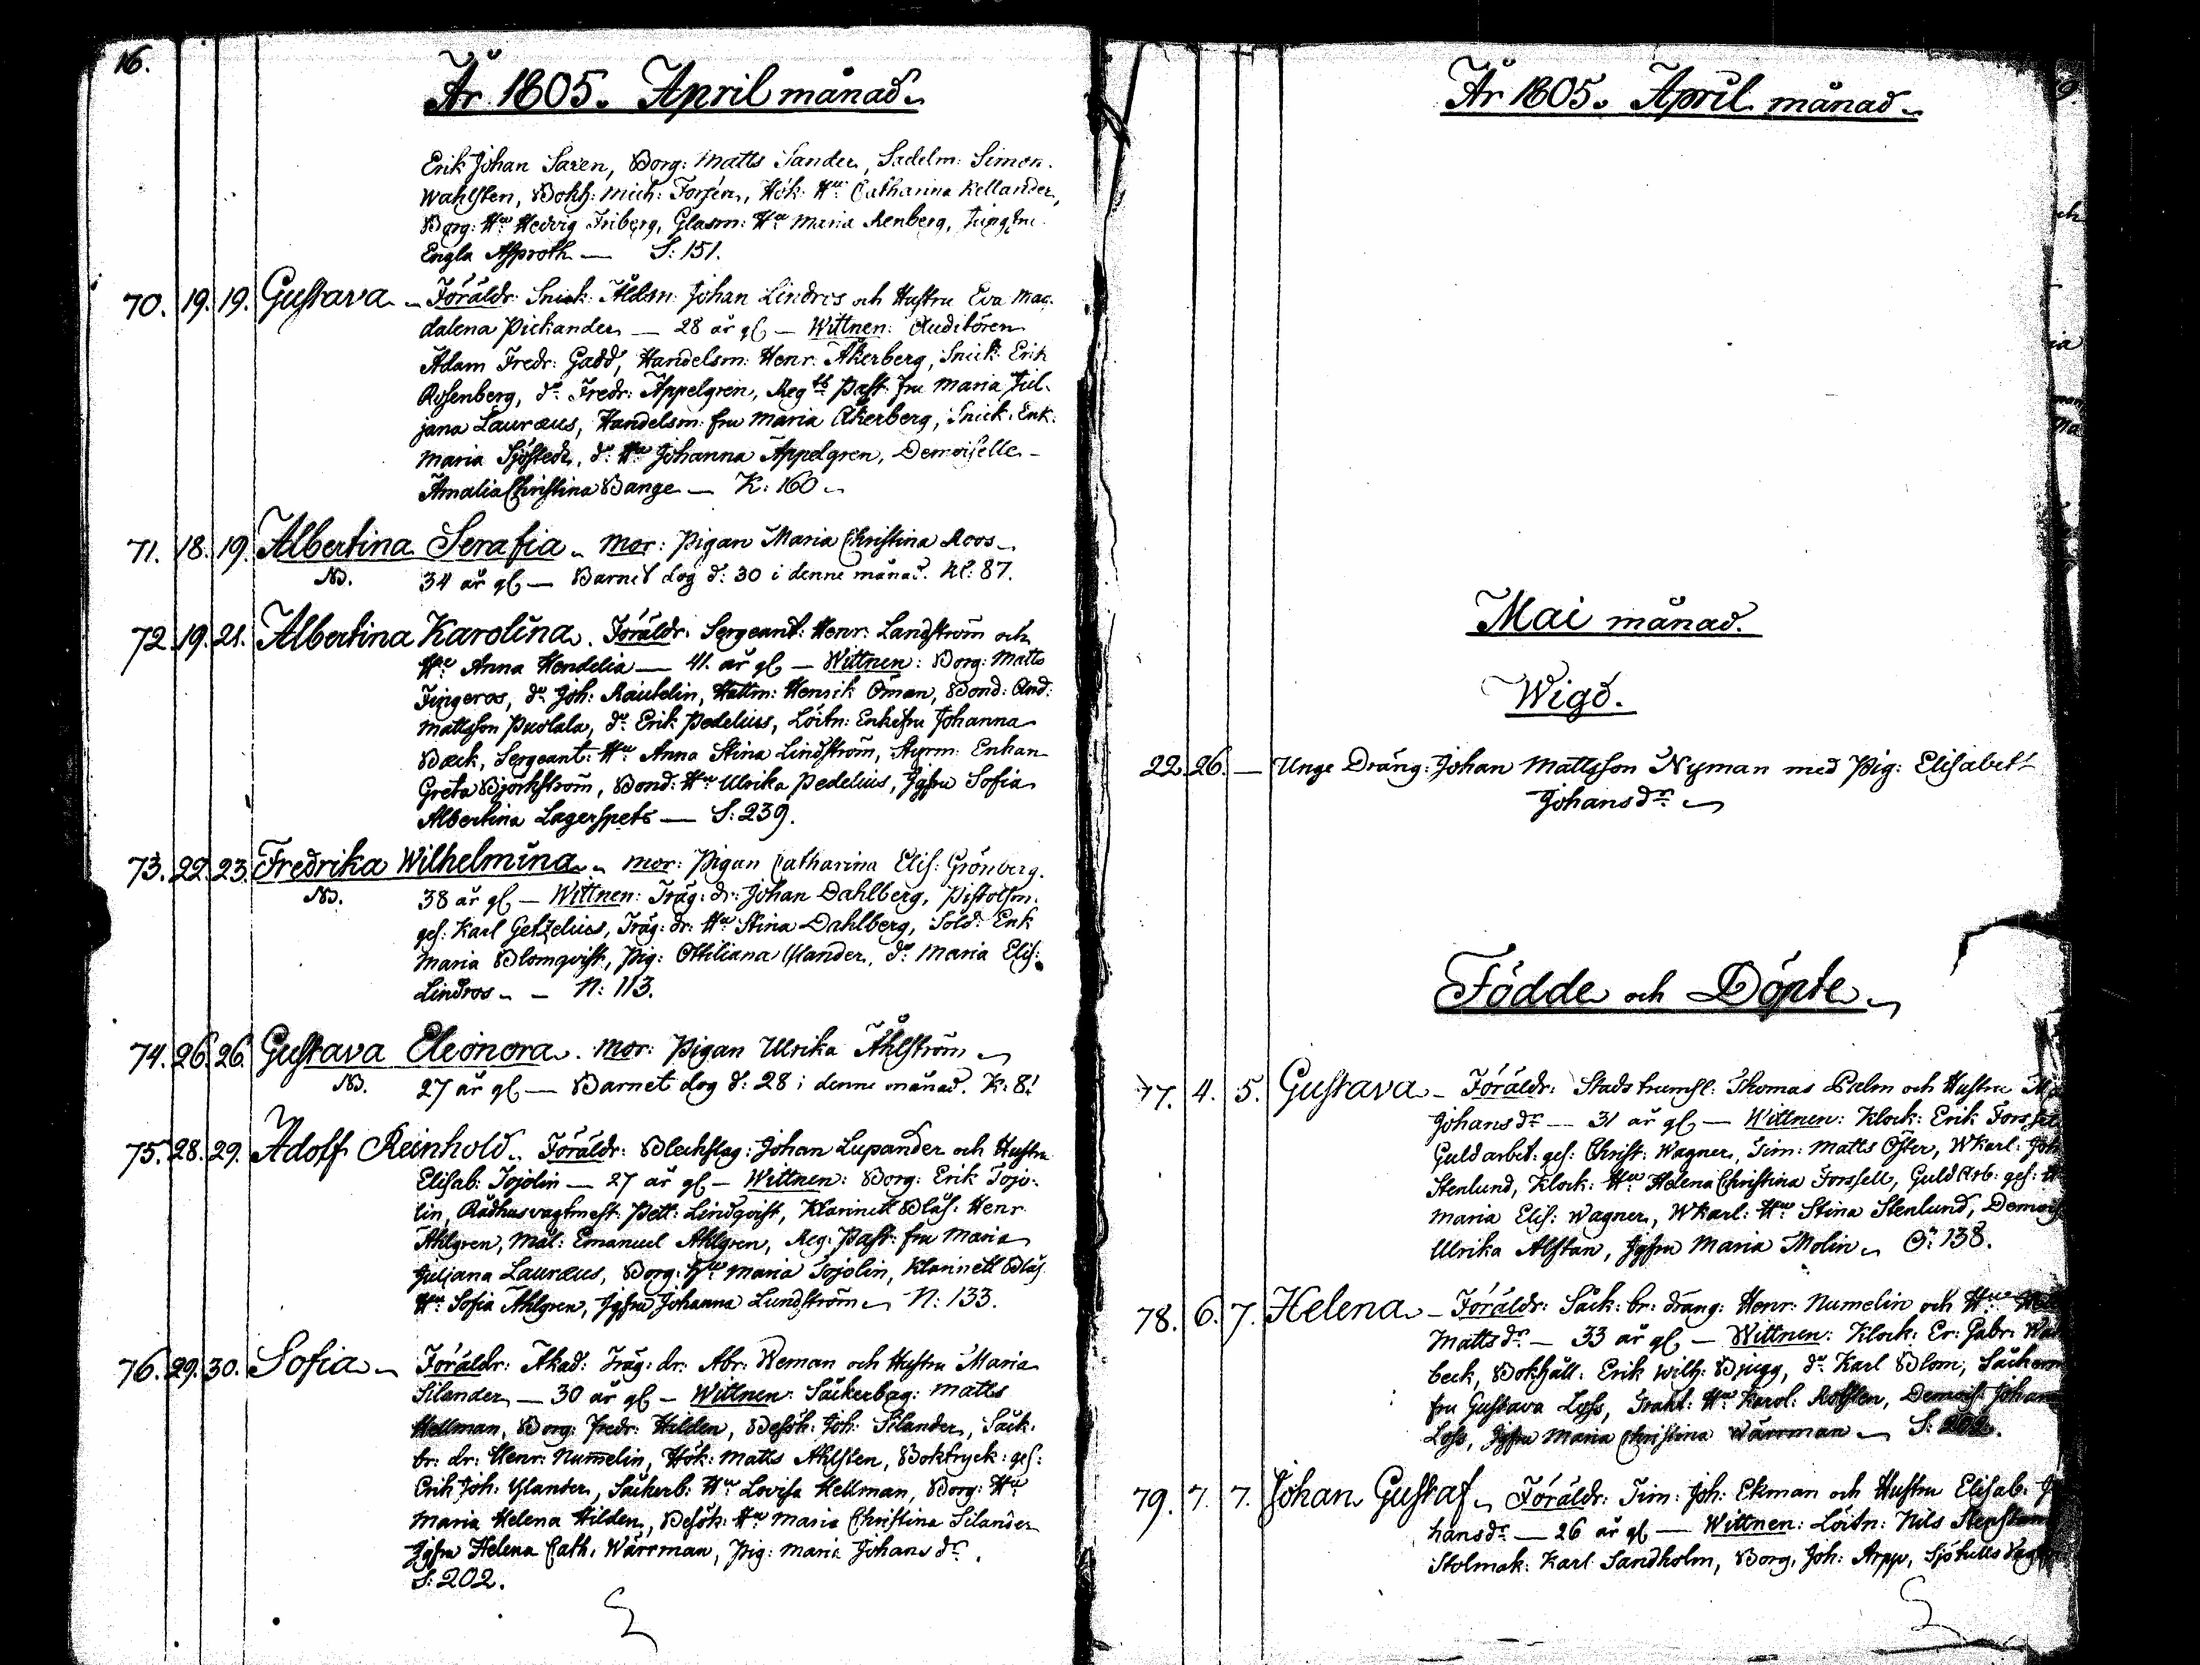 16.
År 1805. April månad.
Erik Johan Saxen, Borg: Matts Sander, Sadelm: Simon
Wahlsten, Bokh: Mich: Forsén, Hök: Hu Catharina Kellander,
Borg: Hu Hedvig Friberg, Glasm: Hu Maria Renberg, Jungfru
Engla Asproth — S: 151.
70. 19. 19. Gustava — Föräldr: Snick: Ålderm: Johan Lindros och Hustru Eva Mag-
dalena Pickander — 28 år gl — Wittnen: Auditören
Adam Fredr: Gadd, Handelsm: Henr: Åkerberg, Snick: Erik
Rosenberg, do Fredr: Appelgren, Regts Past: fru Maria Jul-
jana Lauræus, Handelsm: fru Maria Åkerberg, Snick: Enk:
Maria Sjöstedt, do Hu Johanna Appelgren, Demoiselle
Amalia Christina Bange — K: 160
71. 18. 19. Albertina Serafia. Mor: Pigan Maria Christina Roos
NB. 34 år gl — Barnet dog d: 30 i denne månad. Kl: 87.
72. 19. 21. Albertina Karolina. Föräldr: Sergeant: Henr: Landström och
Hu Anna Hendelia — 41. år gl — Wittnen: Borg: Matts
Fingeroos, do Joh: Rautelin, Hattm: Henrik Öman, Bond: And:
Mattsson Puolala, do Erik Pedelius, Löitn: Enkefru Johanna
Bæck, Sergeant: Hu Anna Stina Lindström, Styrm: Enkan
Greta Björkström, Bond: Hu Ulrika Pedelius, Jgfru Sofia
Albertina Lagerspets — S: 239.
73. 22. 23. Fredrika Wilhelmina. Mor: Pigan Catharina Elis: Grönberg.
NB. 38 år gl — Wittnen: Träg: dr: Johan Dahlberg, Pistolsm:
ges: Karl Getzelius, Träg: dr: Hu Stina Dahlberg, Sold: Enk
Maria Blomqvist, Pig: Ottiliana Ulander, do Maria Elis:
Lindros — N: 113.
74. 26. 26. Gustava Eleonora. Mor: Pigan Ulrika Åhlström
NB. 27 år gl — Barnet dog d: 28 i denne månad. K: 81
75. 28. 29. Adolf Reinhold. Föräldr: Bleckslag: Johan Lupander och Hustru
Elisab: Tojolin — 27 år gl — Wittnen: Borg: Erik Tojo-
lin, Rådhusvagtmest: Pett: Lindqvist, Klarinett Blås: Henr
Ahlgren, Mål: Emanuel Ahlgren, Reg: Past: fru Maria
Juljana Lauræus, Borg: Hu Maria Tojolin, Klarinett Blås
Hu Sofia Ahlgren, Jgfru Johanna Lundström N: 133.
76. 29. 30. Sofia — Föräldr: Akad: Träg: dr: Abr: Weman och Hustru Maria
Silander — 30 år gl — Wittnen: Såckerbag: Matts
Hellman, Borg: Fredr: Hilden, Besök: Joh: Silander, Såck:
br: dr: Henr: Numelin, Hök: Matts Ahlsten, Boktryck: ges:
Erik Joh: Ylander, Såckerb: Hu Lovisa Hellman, Borg: Hu
Maria Helena Hilden, Besök: Hu Maria Christina Silander
Jgfru Helena Cath: Wårrman, Pig: Maria Johans dr.
S: 202.
År 1805. April månad.
Mai månad.
Wigd.
22. 26. — Unge Dräng: Johan Mattsson Nyman med Pig: Elisabet
Johansdr
Födde och Döpte
77. 4. 5. Gustava — Föräldr: Stads trumsl: Thomas Palm och Hustru
Johansdr — 31 år gl — Wittnen: Klock: Erik Forssell
Guldarbet: ges: Christ: Wagner, Tim: Matts Öster, Wkarl: Joh
Stenlund, Klock: Hu Helena Christina Forssell, Guld Arb: ges:
Maria Elis: Wagner, Wkarl: Hu Stina Stenlund, Demois
Ulrika Alstan, Jgfru Maria Molin. Ö: 138.
78. 6. 7. Helena — Föräldr: Såck: br: dräng: Henr: Numelin och Hu
Mattsdr — 33 år gl — Wittnen: Klock: Er: Gabr:
beck, Bokhåll: Erik Wilh: Brugg, do Karl Blom,
fru Gustava Loss, Trakt: Hu Karol: Rolsten, Demois: Johan
Loss, Jgfru Maria Christina Wårrman — S:
79. 7. 7. Johan Gustaf. Föräldr: Tim: Joh: Ekman och Hustru Elisab: Jo
hansdr — 26 år gl — Wittnen: Löitn: Nils
Stolmak: Karl Sandholm, Borg: Joh: Arpp, Sjötulls